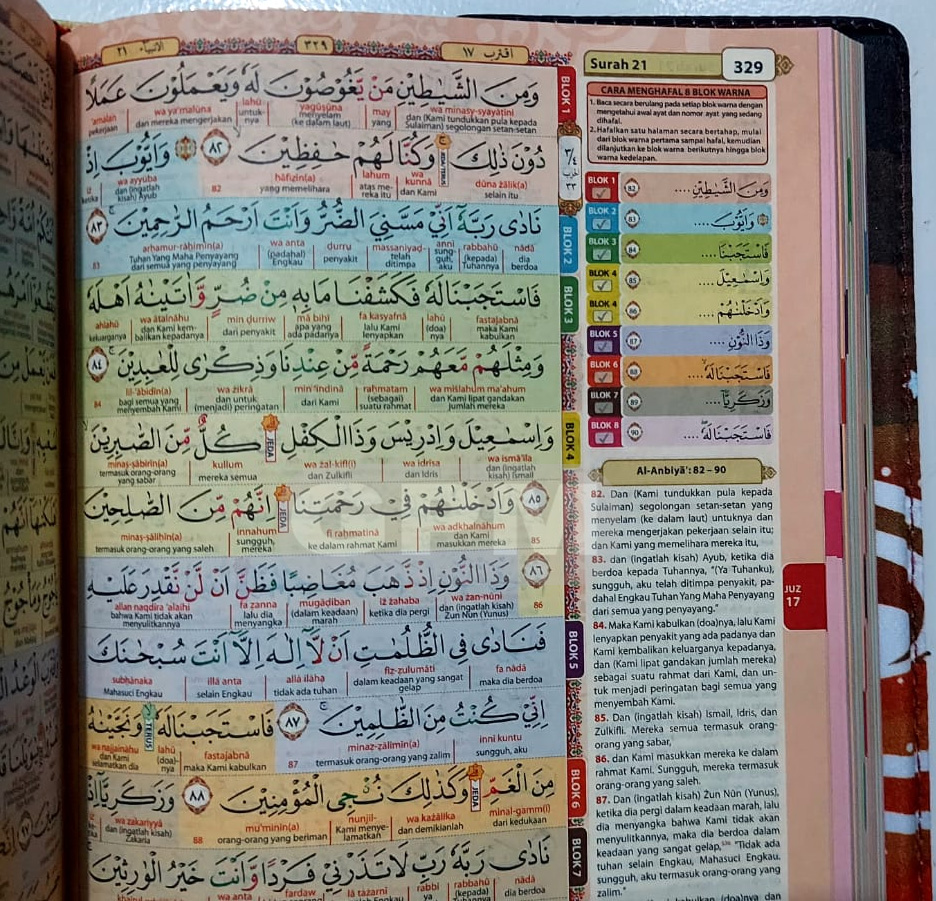 الانبياء ٢١
٣٢٩
اقترب ١٧
وَمِنَ الشَّيٰطِيْنِ مَنْ يَّغُوْصُوْنَ لَهٗ وَيَعْمَلُوْنَ عَمَلًا
wa minasy-syayāṭīni may yagūṣūna lahū wa ya'malūna 'amalan
dan (Kami tundukkan pula kepada Sulaiman) segolongan setan-setan yang menyelam (ke dalam laut) untuk-nya dan mereka mengerjakan pekerjaan
دُوْنَ ذٰلِكَۚ وَكُنَّا لَهُمْ حٰفِظِيْنَ ۙ ٨٢ ۞ وَاَيُّوْبَ اِذْ
dūna żālika wa kunnā lahum ḥāfiẓīn(a) 82 wa ayyūba iż
selain itu dan Kami atas me-reka itu yang memelihara dan (ingatlah kisah) Ayub ketika
نَادٰى رَبَّهٗٓ اَنِّيْ مَسَّنِيَ الضُّرُّ وَاَنْتَ اَرْحَمُ الرّٰحِمِيْنَ ۚ ٨٣
nādā rabbahū annī massaniyaḍ- ḍurru wa anta arḥamur-rāḥimīn(a)
dia berdoa (kepada) Tuhannya sung-guh, aku telah ditimpa penyakit (padahal) Engkau Tuhan Yang Maha Penyayang dari semua yang penyayang 83
فَاسْتَجَبْنَا لَهٗ فَكَشَفْنَا مَا بِهٖ مِنْ ضُرٍّ وَّاٰتَيْنٰهُ اَهْلَهٗ
fastajabnā lahū fa kasyafnā mā bihī min ḍurriw wa ātaināhu ahlahū
maka Kami kabulkan (doa)-nya lalu Kami lenyapkan apa yang ada padanya dari penyakit dan Kami kem-balikan kepadanya keluarganya
وَمِثْلَهُمْ مَّعَهُمْ رَحْمَةً مِّنْ عِنْدِنَا وَذِكْرٰى لِلْعٰبِدِيْنَ ۚ ٨٤
wa miṡlahum ma'ahum raḥmatam min 'indinā wa żikrā lil-'ābidīn(a)
dan Kami lipat gandakan jumlah mereka (sebagai) suatu rahmat dari Kami dan untuk (menjadi) peringatan bagi semua yang menyembah Kami 84
وَاِسْمٰعِيْلَ وَاِدْرِيْسَ وَذَا الْكِفْلِۗ كُلٌّ مِّنَ الصّٰبِرِيْنَ
wa ismā'īla wa idrīsa wa żal-kifl(i) kullum minaṣ-ṣābirīn(a)
dan (ingatlah kisah) Ismail dan Idris dan Zulkifli mereka semua termasuk orang-orang yang sabar
٨٥ وَاَدْخَلْنٰهُمْ فِيْ رَحْمَتِنَاۗ اِنَّهُمْ مِّنَ الصّٰلِحِيْنَ
85 wa adkhalnāhum fī raḥmatinā innahum minaṣ-ṣāliḥīn(a)
dan Kami masukkan mereka ke dalam rahmat Kami sungguh, mereka termasuk orang-orang yang saleh
٨٦ وَذَا النُّوْنِ اِذْ ذَّهَبَ مُغَاضِبًا فَظَنَّ اَنْ لَّنْ نَّقْدِرَ عَلَيْهِ
86 wa żan-nūni iż żahaba mugāḍiban fa ẓanna allan naqdira 'alaihi
dan (ingatlah kisah) Zun Nūn (Yunus) ketika dia pergi (dalam keadaan) marah lalu dia menyangka bahwa Kami tidak akan menyulitkannya
فَنَادٰى فِى الظُّلُمٰتِ اَنْ لَّآ اِلٰهَ اِلَّآ اَنْتَ سُبْحٰنَكَ
fa nādā fiẓ-ẓulumāti allā ilāha illā anta subḥānaka
maka dia berdoa dalam keadaan yang sangat gelap tidak ada tuhan selain Engkau Mahasuci Engkau
اِنِّيْ كُنْتُ مِنَ الظّٰلِمِيْنَ ٨٧ فَاسْتَجَبْنَا لَهٗۙ وَنَجَّيْنٰهُ
innī kuntu minaẓ-ẓālimīn(a) 87 fastajabnā lahū wa najjaināhu
sungguh, aku termasuk orang-orang yang zalim maka Kami kabulkan (doa)-nya dan Kami selamatkan dia
مِنَ الْغَمِّۗ وَكَذٰلِكَ نُـْۨجِى الْمُؤْمِنِيْنَ ٨٨ وَزَكَرِيَّآ اِذْ
minal-gamm(i) wa każālika nunjil- mu'minīn(a) 88 wa zakariyyā
dari kedukaan dan demikianlah Kami menye-lamatkan orang-orang yang beriman dan (ingatlah kisah) Zakaria
نَادٰى رَبَّهٗ رَبِّ لَا تَذَرْنِيْ فَرْدًا وَّاَنْتَ خَيْرُ الْوٰرِثِيْنَ
nādā rabbahū rabbi lā tażarnī fardaw wa anta
dia berdoa (kepada) Tuhannya ya
BLOK 1
BLOK 2
BLOK 3
BLOK 4
BLOK 5
BLOK 6
BLOK 7
Surah 21
329
CARA MENGHAFAL 8 BLOK WARNA
1. Baca secara berulang pada setiap blok warna dengan
mengetahui awal ayat dan nomor ayat yang sedang
dihafal.
2. Hafalkan satu halaman secara bertahap, mulai
dari blok warna pertama sampai hafal, kemudian
dilanjutkan ke blok warna berikutnya hingga blok
warna kedelapan.
BLOK 1 82 وَمِنَ الشَّيٰطِيْنِ ....
BLOK 2 83 ۞ وَاَيُّوْبَ ....
BLOK 3 84 فَاسْتَجَبْنَا ....
BLOK 4 85 وَاِسْمٰعِيْلَ ....
BLOK 4 86 وَاَدْخَلْنٰهُمْ ....
BLOK 5 87 وَذَا النُّوْنِ ....
BLOK 6 88 فَاسْتَجَبْنَا لَهٗۙ ....
BLOK 7 89 وَزَكَرِيَّآ ....
BLOK 8 90 فَاسْتَجَبْنَا لَهٗ ....
Al-Anbiyā': 82 – 90
82. Dan (Kami tundukkan pula kepada
Sulaiman) segolongan setan-setan yang
menyelam (ke dalam laut) untuknya dan
mereka mengerjakan pekerjaan selain itu;
dan Kami yang memelihara mereka itu,
83. dan (ingatlah kisah) Ayub, ketika dia
berdoa kepada Tuhannya, "(Ya Tuhanku),
sungguh, aku telah ditimpa penyakit, pa-
dahal Engkau Tuhan Yang Maha Penyayang
dari semua yang penyayang."
84. Maka Kami kabulkan (doa)nya, lalu Kami
lenyapkan penyakit yang ada padanya dan
Kami kembalikan keluarganya kepadanya,
dan (Kami lipat gandakan jumlah mereka)
sebagai suatu rahmat dari Kami, dan un-
tuk menjadi peringatan bagi semua yang
menyembah Kami.
85. Dan (ingatlah kisah) Ismail, Idris, dan
Zulkifli. Mereka semua termasuk orang-
orang yang sabar,
86. dan Kami masukkan mereka ke dalam
rahmat Kami. Sungguh, mereka termasuk
orang-orang yang saleh.
87. Dan (ingatlah kisah) Zun Nūn (Yunus),
ketika dia pergi dalam keadaan marah, lalu
dia menyangka bahwa Kami tidak akan
menyulitkannya, maka dia berdoa dalam
keadaan yang sangat gelap, "Tidak ada
tuhan selain Engkau, Mahasuci Engkau.
sungguh, aku termasuk orang-orang yang
zalim."
JUZ
17